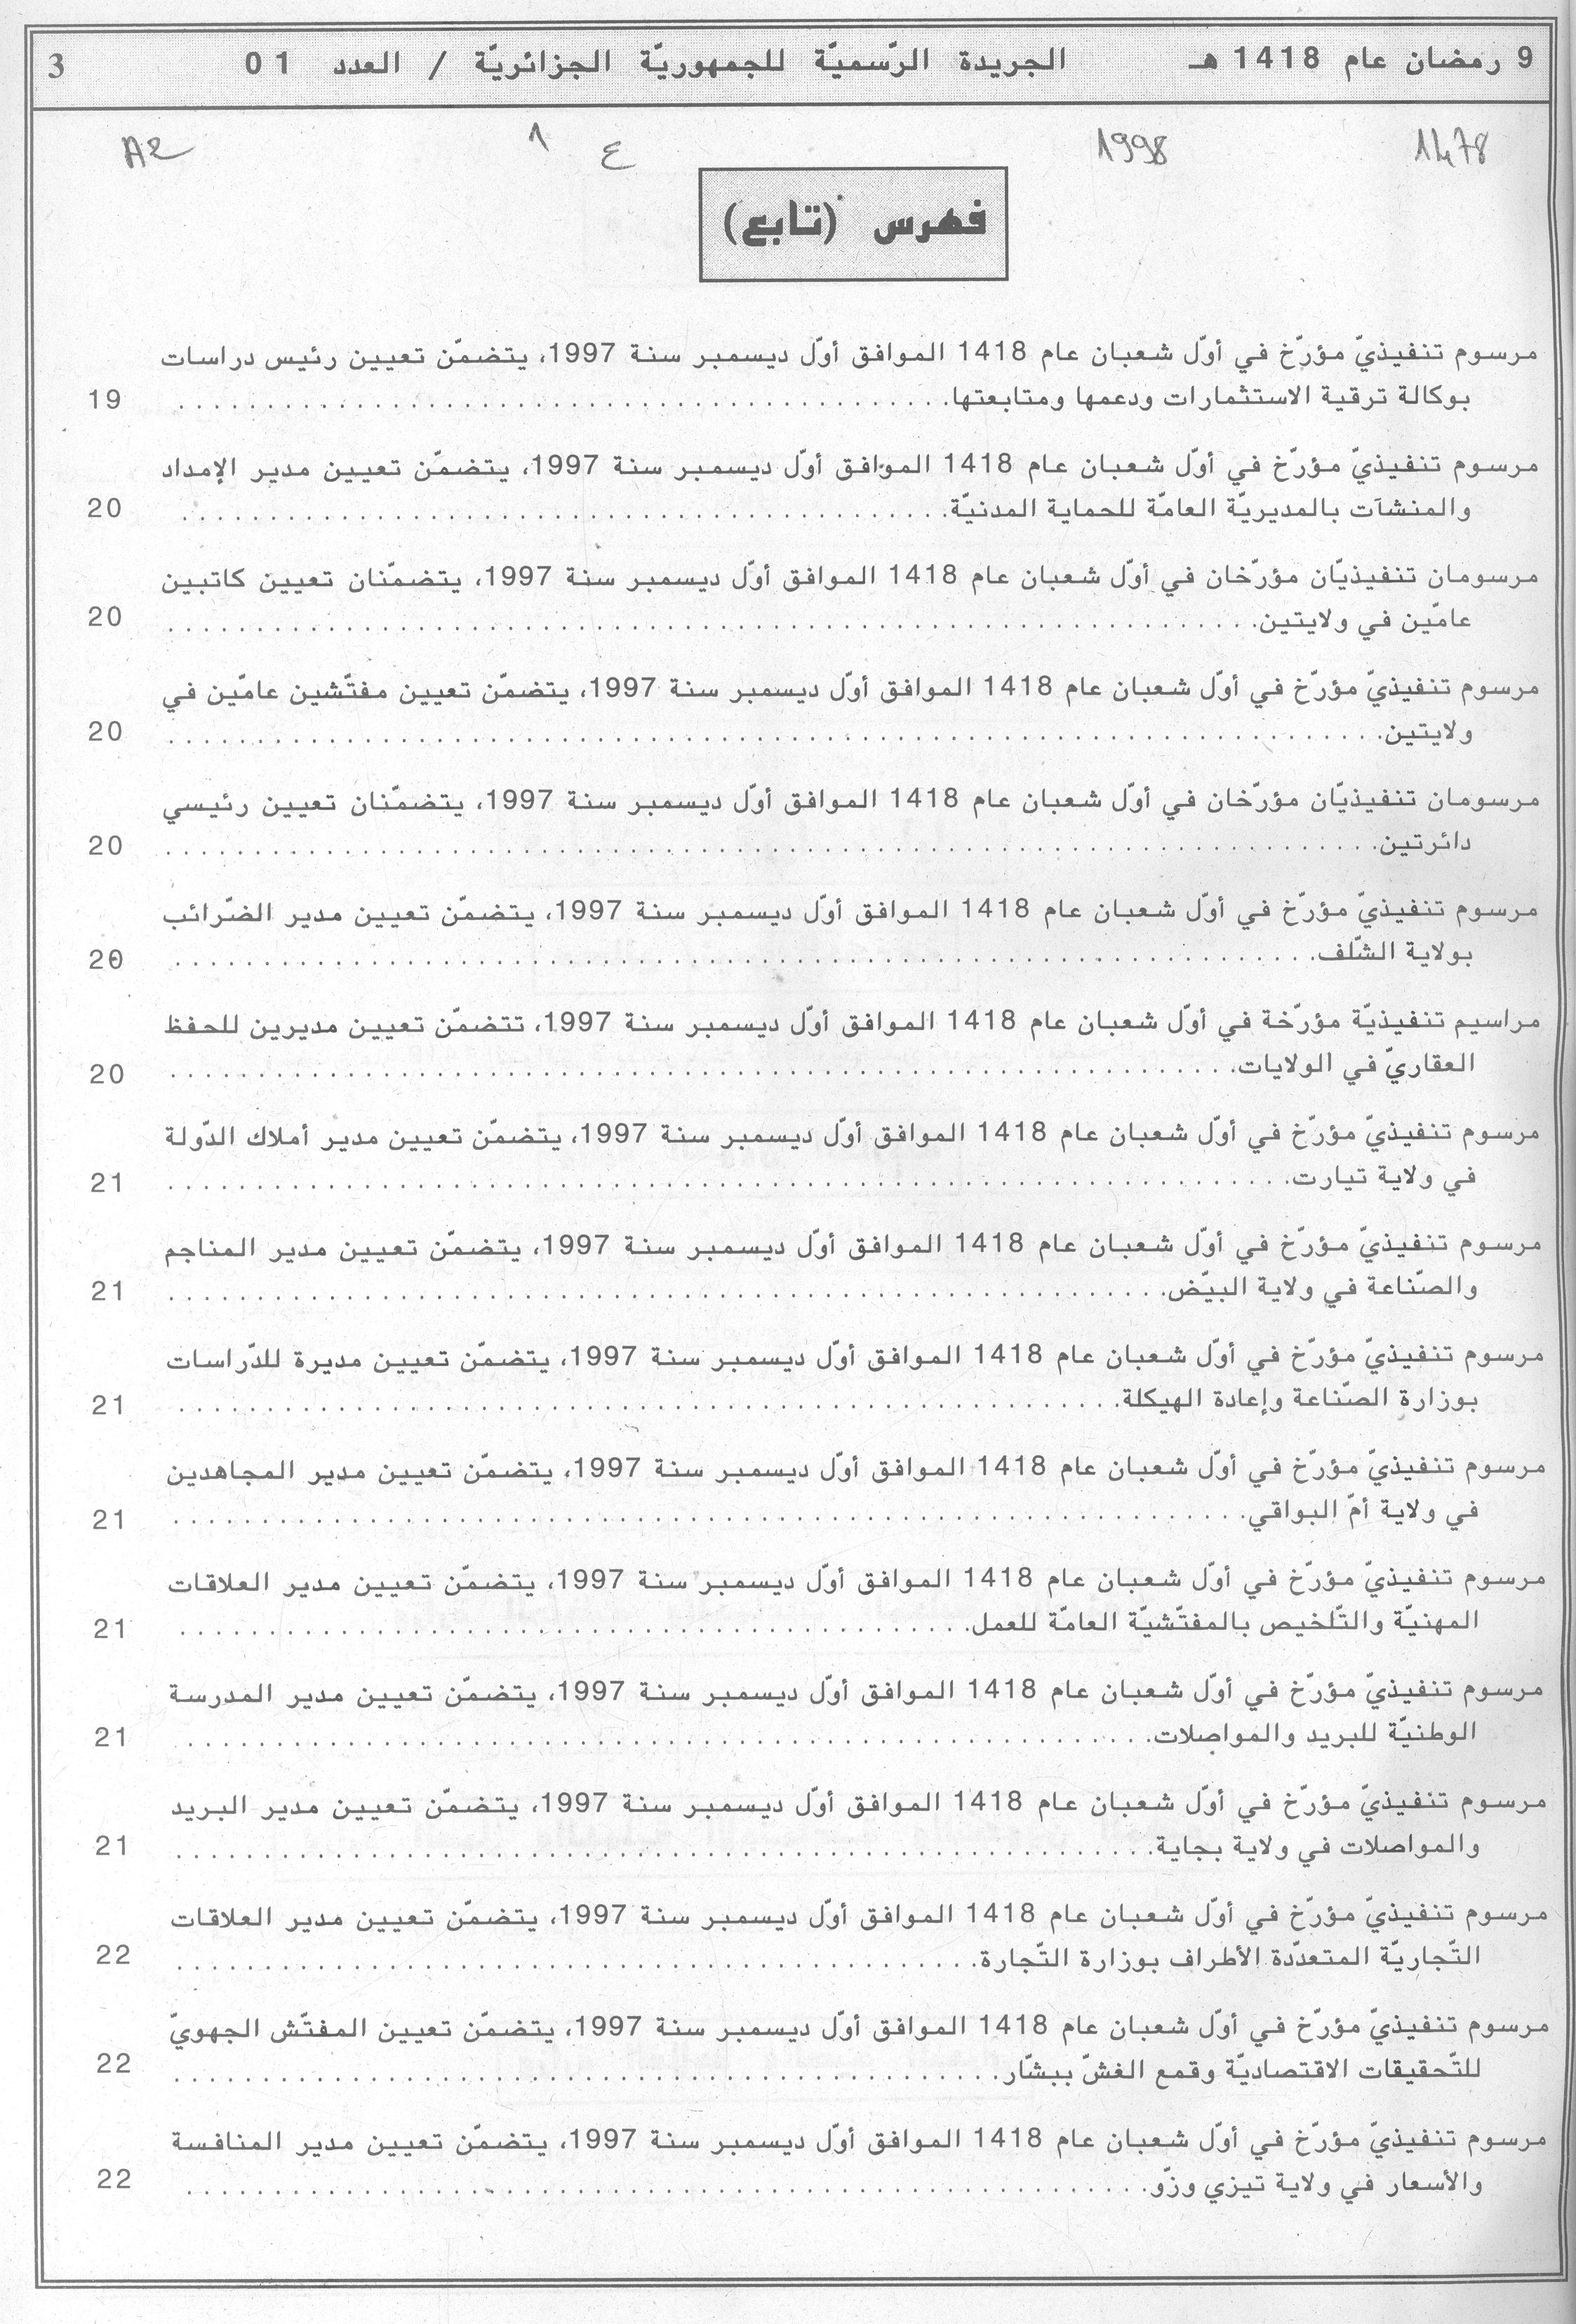 9 رمضان عام 1418 هـ الجريدة الرّسميّة للجمهوريّة الجزائريّة / العدد 01 3
1478 1998 ع 1 A2
فهرس (تابع)
مرسوم تنفيذيّ مؤرّخ في أوّل شعبان عام 1418 الموافق أوّل ديسمبر سنة 1997، يتضمّن تعيين رئيس دراسات
بوكالة ترقية الاستثمارات ودعمها ومتابعتها. 19
مرسوم تنفيذيّ مؤرّخ في أوّل شعبان عام 1418 الموافق أوّل ديسمبر سنة 1997، يتضمّن تعيين مدير الإمداد
والمنشآت بالمديريّة العامّة للحماية المدنيّة. 20
مرسومان تنفيذيّان مؤرّخان في أوّل شعبان عام 1418 الموافق أوّل ديسمبر سنة 1997، يتضمّنان تعيين كاتبين
عامّين في ولايتين. 20
مرسوم تنفيذيّ مؤرّخ في أوّل شعبان عام 1418 الموافق أوّل ديسمبر سنة 1997، يتضمّن تعيين مفتّشين عامّين في
ولايتين. 20
مرسومان تنفيذيّان مؤرّخان في أوّل شعبان عام 1418 الموافق أوّل ديسمبر سنة 1997، يتضمّنان تعيين رئيسي
دائرتين. 20
مرسوم تنفيذيّ مؤرّخ في أوّل شعبان عام 1418 الموافق أوّل ديسمبر سنة 1997، يتضمّن تعيين مدير الضّرائب
بولاية الشّلف. 20
مراسيم تنفيذيّة مؤرّخة في أوّل شعبان عام 1418 الموافق أوّل ديسمبر سنة 1997، تتضمّن تعيين مديرين للحفظ
العقاريّ في الولايات. 20
مرسوم تنفيذيّ مؤرّخ في أوّل شعبان عام 1418 الموافق أوّل ديسمبر سنة 1997، يتضمّن تعيين مدير أملاك الدّولة
في ولاية تيارت. 21
مرسوم تنفيذيّ مؤرّخ في أوّل شعبان عام 1418 الموافق أوّل ديسمبر سنة 1997، يتضمّن تعيين مدير المناجم
والصّناعة في ولاية البيّض. 21
مرسوم تنفيذيّ مؤرّخ في أوّل شعبان عام 1418 الموافق أوّل ديسمبر سنة 1997، يتضمّن تعيين مديرة للدّراسات
بوزارة الصّناعة وإعادة الهيكلة. 21
مرسوم تنفيذيّ مؤرّخ في أوّل شعبان عام 1418 الموافق أوّل ديسمبر سنة 1997، يتضمّن تعيين مدير المجاهدين
في ولاية أمّ البواقي. 21
مرسوم تنفيذيّ مؤرّخ في أوّل شعبان عام 1418 الموافق أوّل ديسمبر سنة 1997، يتضمّن تعيين مدير العلاقات
المهنيّة والتّلخيص بالمفتّشيّة العامّة للعمل. 21
مرسوم تنفيذيّ مؤرّخ في أوّل شعبان عام 1418 الموافق أوّل ديسمبر سنة 1997، يتضمّن تعيين مدير المدرسة
الوطنيّة للبريد والمواصلات. 21
مرسوم تنفيذيّ مؤرّخ في أوّل شعبان عام 1418 الموافق أوّل ديسمبر سنة 1997، يتضمّن تعيين مدير البريد
والمواصلات في ولاية بجاية. 21
مرسوم تنفيذيّ مؤرّخ في أوّل شعبان عام 1418 الموافق أوّل ديسمبر سنة 1997، يتضمّن تعيين مدير العلاقات
التّجاريّة المتعدّدة الأطراف بوزارة التّجارة. 22
مرسوم تنفيذيّ مؤرّخ في أوّل شعبان عام 1418 الموافق أوّل ديسمبر سنة 1997، يتضمّن تعيين المفتّش الجهويّ
للتّحقيقات الاقتصاديّة وقمع الغشّ ببشّار. 22
مرسوم تنفيذيّ مؤرّخ في أوّل شعبان عام 1418 الموافق أوّل ديسمبر سنة 1997، يتضمّن تعيين مدير المنافسة
والأسعار في ولاية تيزي وزّو. 22